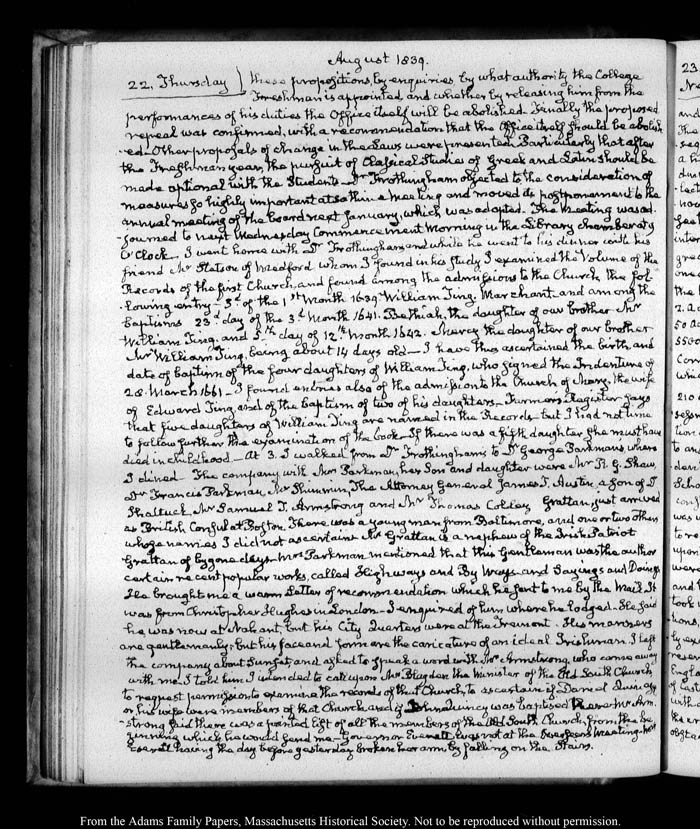 August 1839.
22. Thursday } these propositions, by enquiries by what authority the College
Freshman is appointed and whether by releasing him from the
performances of his duties the Office itself will be abolished. Finally the proposed
repeal was confirmed, with a recommendation that the Office itself should be abolish
-ed. Other proposals of change in the Laws were presented. Particularly that after
the Freshman year, the pursuit of Classical Studies of Greek and Latin should be
made optional with the Students. Dr Frothingham objected to the consideration of
measures so highly important at so thin a meeting and moved its postponement to the
annual meeting of the board next January, which was adopted. The meeting was ad-
journed to next Wednesday Commencement Morning in the Library chamber at 9
O'Clock. I went home with Dr Frothingham and while he went to his dinner with his
friend Mr Stetson of Medford whom I found in his study I examined the Volume of the
Records of the first Church, and found among the admissions to the Church, the fol-
lowing entry. 3d of the 1st Month 1639 William Ting, Marchant and among the
baptisms 23d day of the 3d Month 1641. Bethiah, the daughter of our brother Mr
William Ting and 5th day of 12th Month 1642. Mercy the daughter of our brother
Mr William Ting being about 14 days old— I have thus ascertained the birth and
date of baptism of the four daughters of William Ting, who signed the Indenture of
28. March 1661— I found entries also of the admission to the Church of Mary, the wife
of Edward Ting, and of the baptism of two of his daughters. Farmer's Register says
that five daughters of William Ting are named in the Records but I had not time
to follow further the examination of the book. If there was a fifth daughter she must have
died in childhood— At 3. I walked from Dr Frothingham's to Dr George Parkman's, where
I dined. The company with Mrs Parkman, her Son and daughter were Mr R. G. Shaw,
Dr Francis Parkman, Mr Shimmin, The Attorney General James T. Austin, a son of J
Shattuck, Mr Samuel T. Armstrong and Mr Thomas Colley Grattan, just arrived
as British Consul at Boston. There was a young man from Baltimore, and one or two others
whose names I did not ascertain. Mr Grattan is a nephew of the Irish Patriot
Grattan of bygone days. Mrs Parkman mentioned that this Gentleman was the author
certain recent popular works, called Highways and By Ways and Sayings and Doings
He brought me a warm Letter of recommendation which he sent to me by the Mail. It
was from Christopher Hughes in London. I enquired of him where he lodged. He said
he was now at Nahant, but his City Quarters were at the Tremont. His manners
are gentlemanly: but his face and form are the caricature of an ideal Irishman. I left
the company about Sunset, and asked to speak a word with Mr Armstrong, who came away
with me. I told him I intended to call upon Mr Blagden the Minister of the Old South Church
to request permission to examine the records of that Church, to ascertain if Daniel Quincy
or his wife were members of that Church and if John Quincy was baptised there. Mr Arm-
strong said there was a printed list of all the members of the Old South Church, from the be-
ginning which he would send me. Governor Everett was not at the Overseers Meeting. Mrs
Everett having the day before yesterday broken her arm by falling on the Stairs.
From the Adams Family Papers, Massachusetts Historical Society. Not to be reproduced without permission.